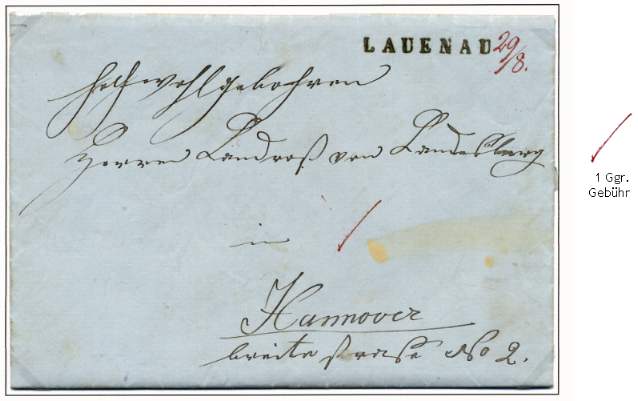 LAUENAU 29/8.
Hochwohlgebohren
Herrn Landroß von Landesberg
in
Hannover
breite straße No 2.
1 Ggr.
Gebühr